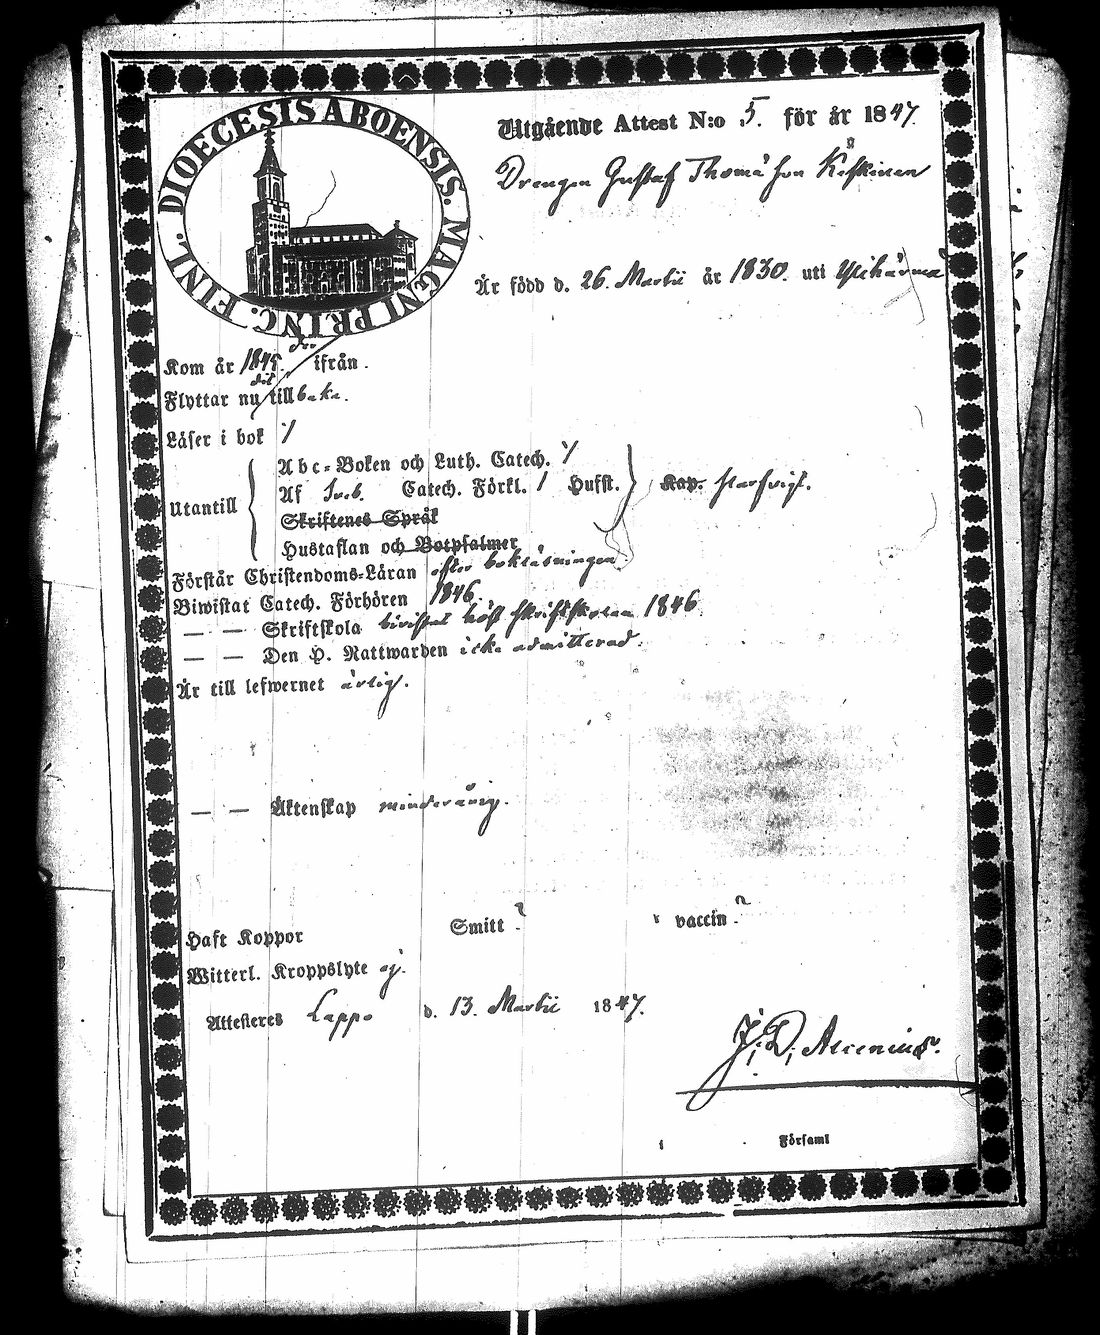 DIOECESIS ABOENSIS. MAGNI PRINC. FINL.
Utgående Attest N:o 5. för år 1847.
Drengen Gustaf Thomasson Keskinen
Är född d. 26. Martii år 1830. uti Ylihärmä
Kom år 1845. der ifrån.
dit
Flyttar nu tillbaka.
Läser i bok
Abc-Boken och Luth. Catech.
Utantill Af Sveb. Catech. Förkl. Husst. Kap. starsvigt.
Skriftenes Språk
Hustaflan och Botpsalmer
Förstår Christendoms-Läran efter bokläsningen
Biwistat Catech. Förhören 1846.
— — Skriftskola bivistat höst skriftskolan 1846.
— — Den H. Nattwarden icke admitterad.
Är till lefwernet ärlig.
— — Äktenskap minderårig.
Haft Koppor Smitt ? vaccin ?
Witterl. Kroppslyte ej.
Attesteres Lappo d. 13. Martii 1847.
J. D. Alcenius.
Församl